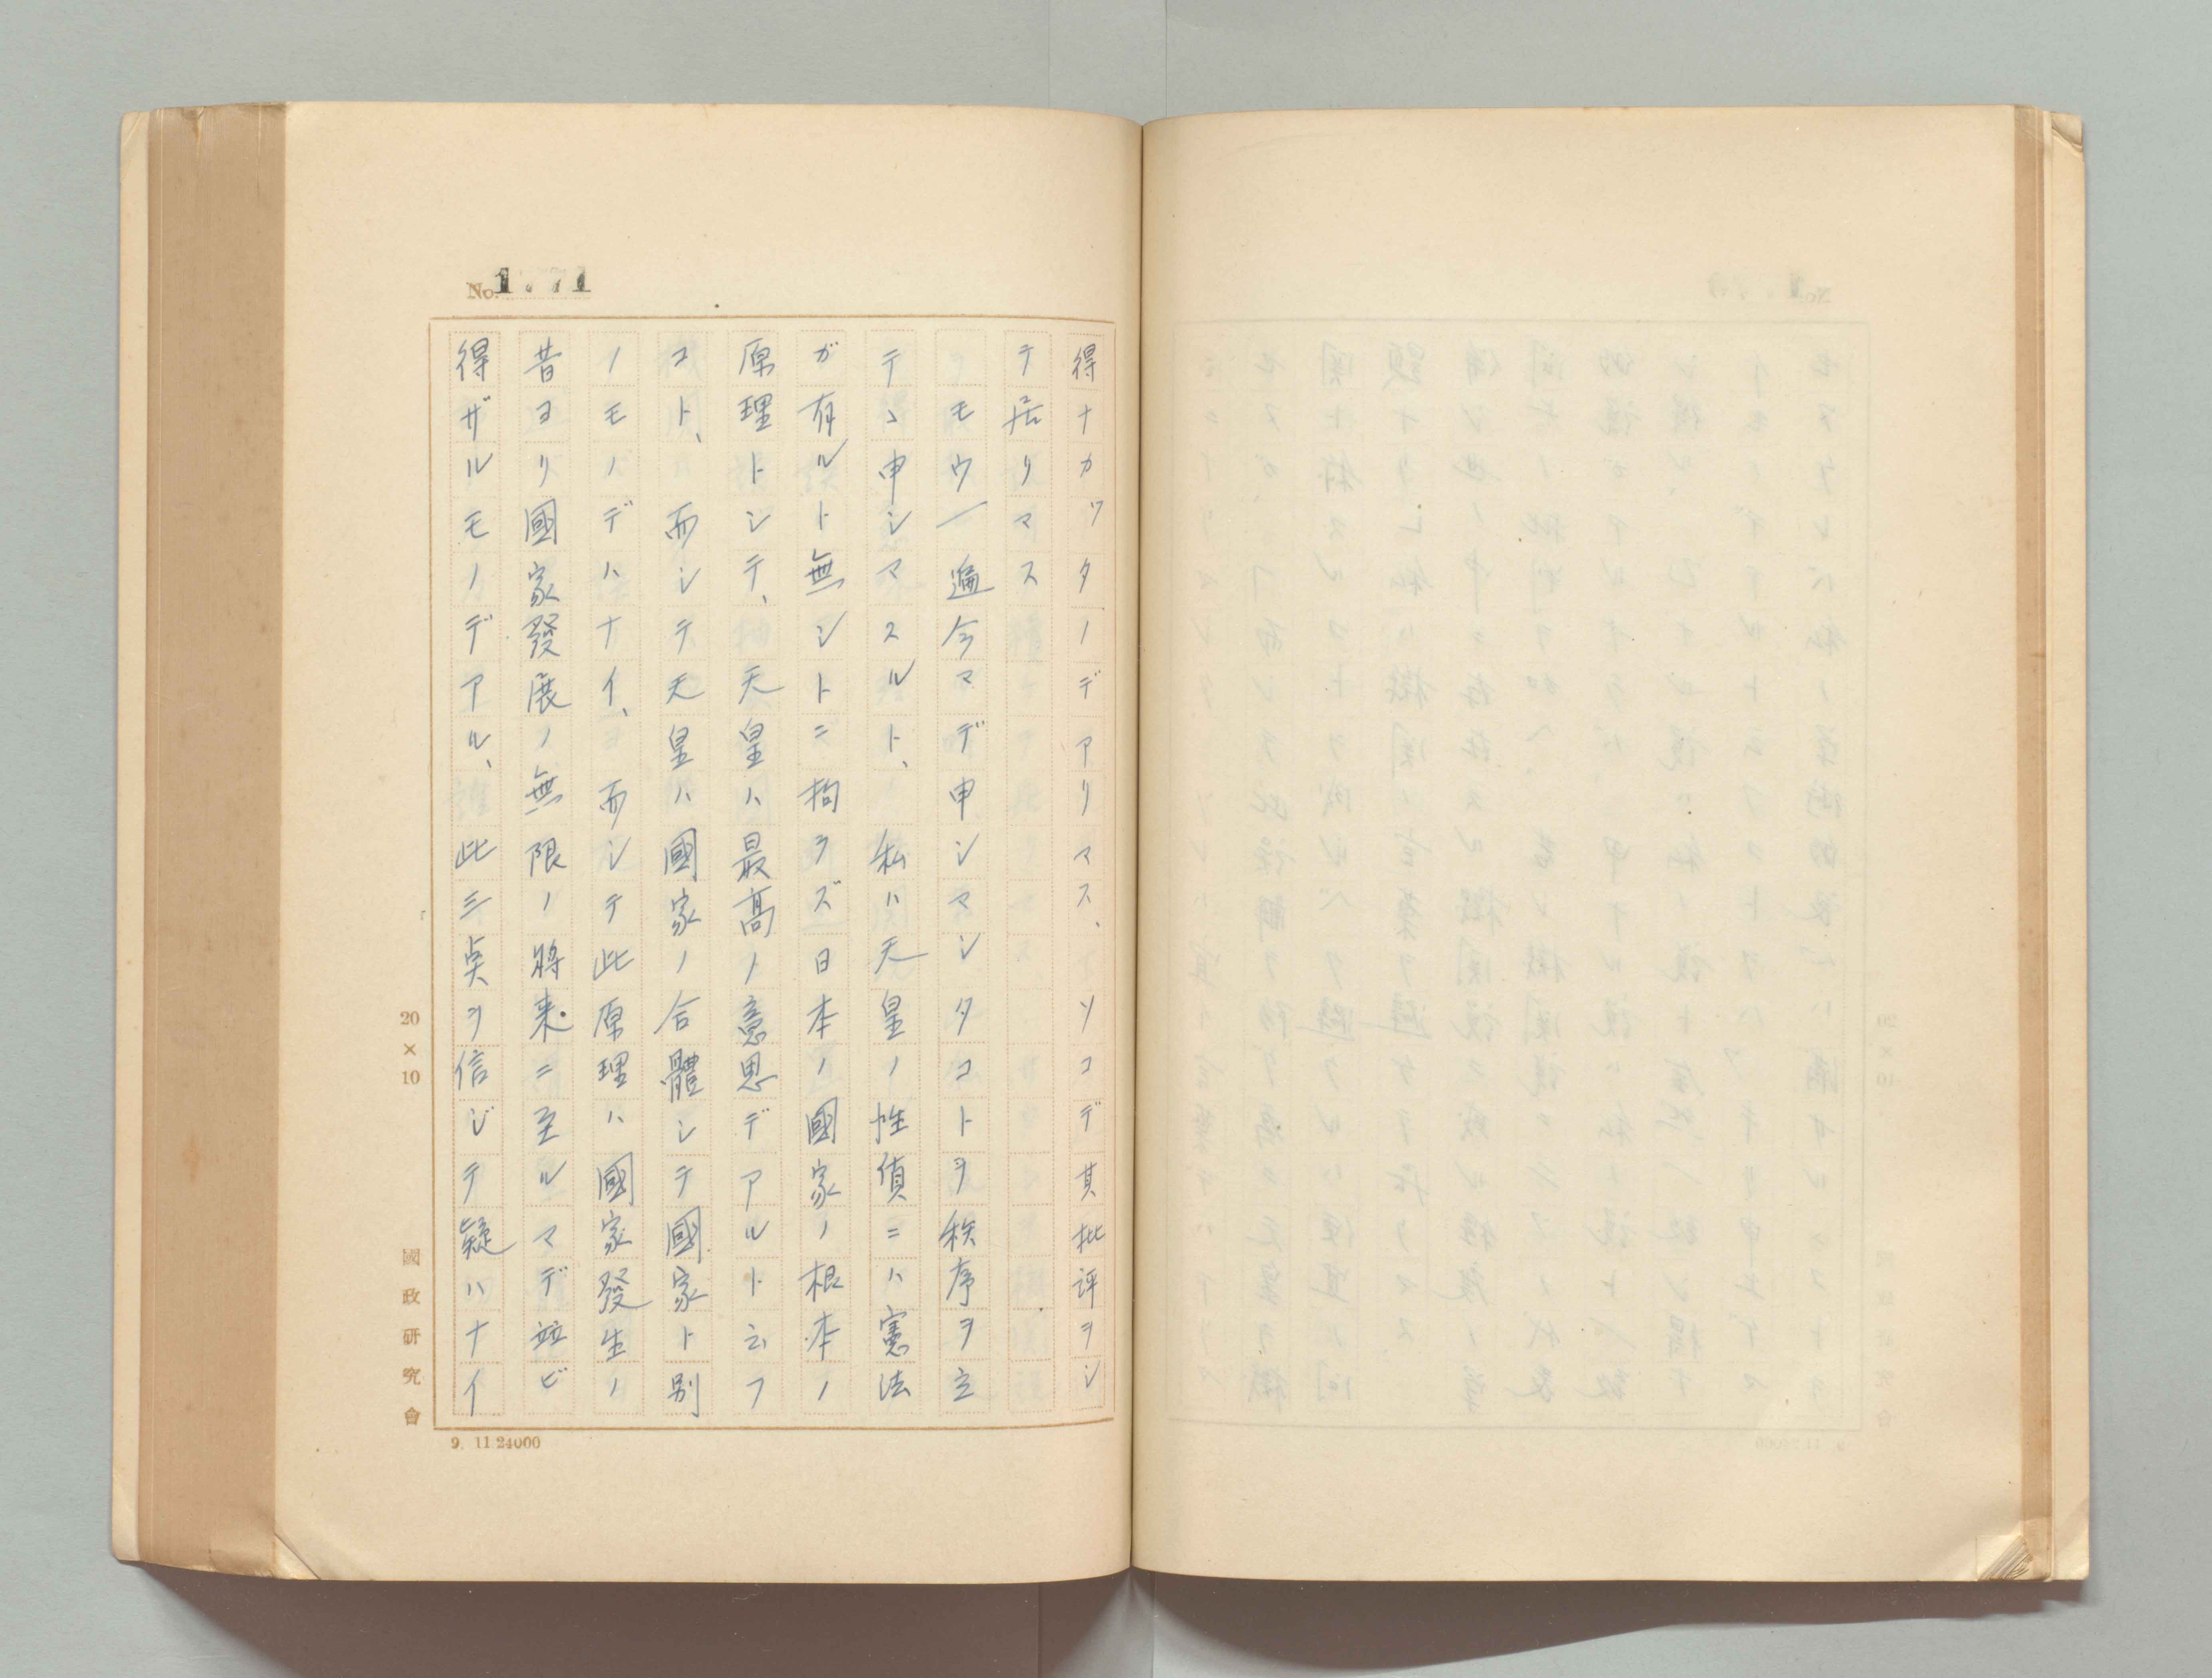 No. 1771
得ナカツタノデアリマス、ソコデ其批評ヲシ
テ居リマス
モウ一遍今マデ申シマシタコトヲ秩序ヲ立
テヽ申シマスルト、私ハ天皇ノ性質ニハ憲法
ガ有ルト無シトニ拘ラズ日本ノ國家ノ根本ノ
原理トシテ、天皇ハ最高ノ意思デアルト云フ
コト、而シテ天皇ハ國家ノ合體シテ國家ト別
ノモノデハナイ、而シテ此原理ハ國家發生ノ
昔ヨリ國家發展ノ無限ノ將来ニ至ルマデ竝ビ
得ザルモノデアル、此三点ヲ信ジテ疑ハナイ
20×10
國政研究會
9. 11 24000